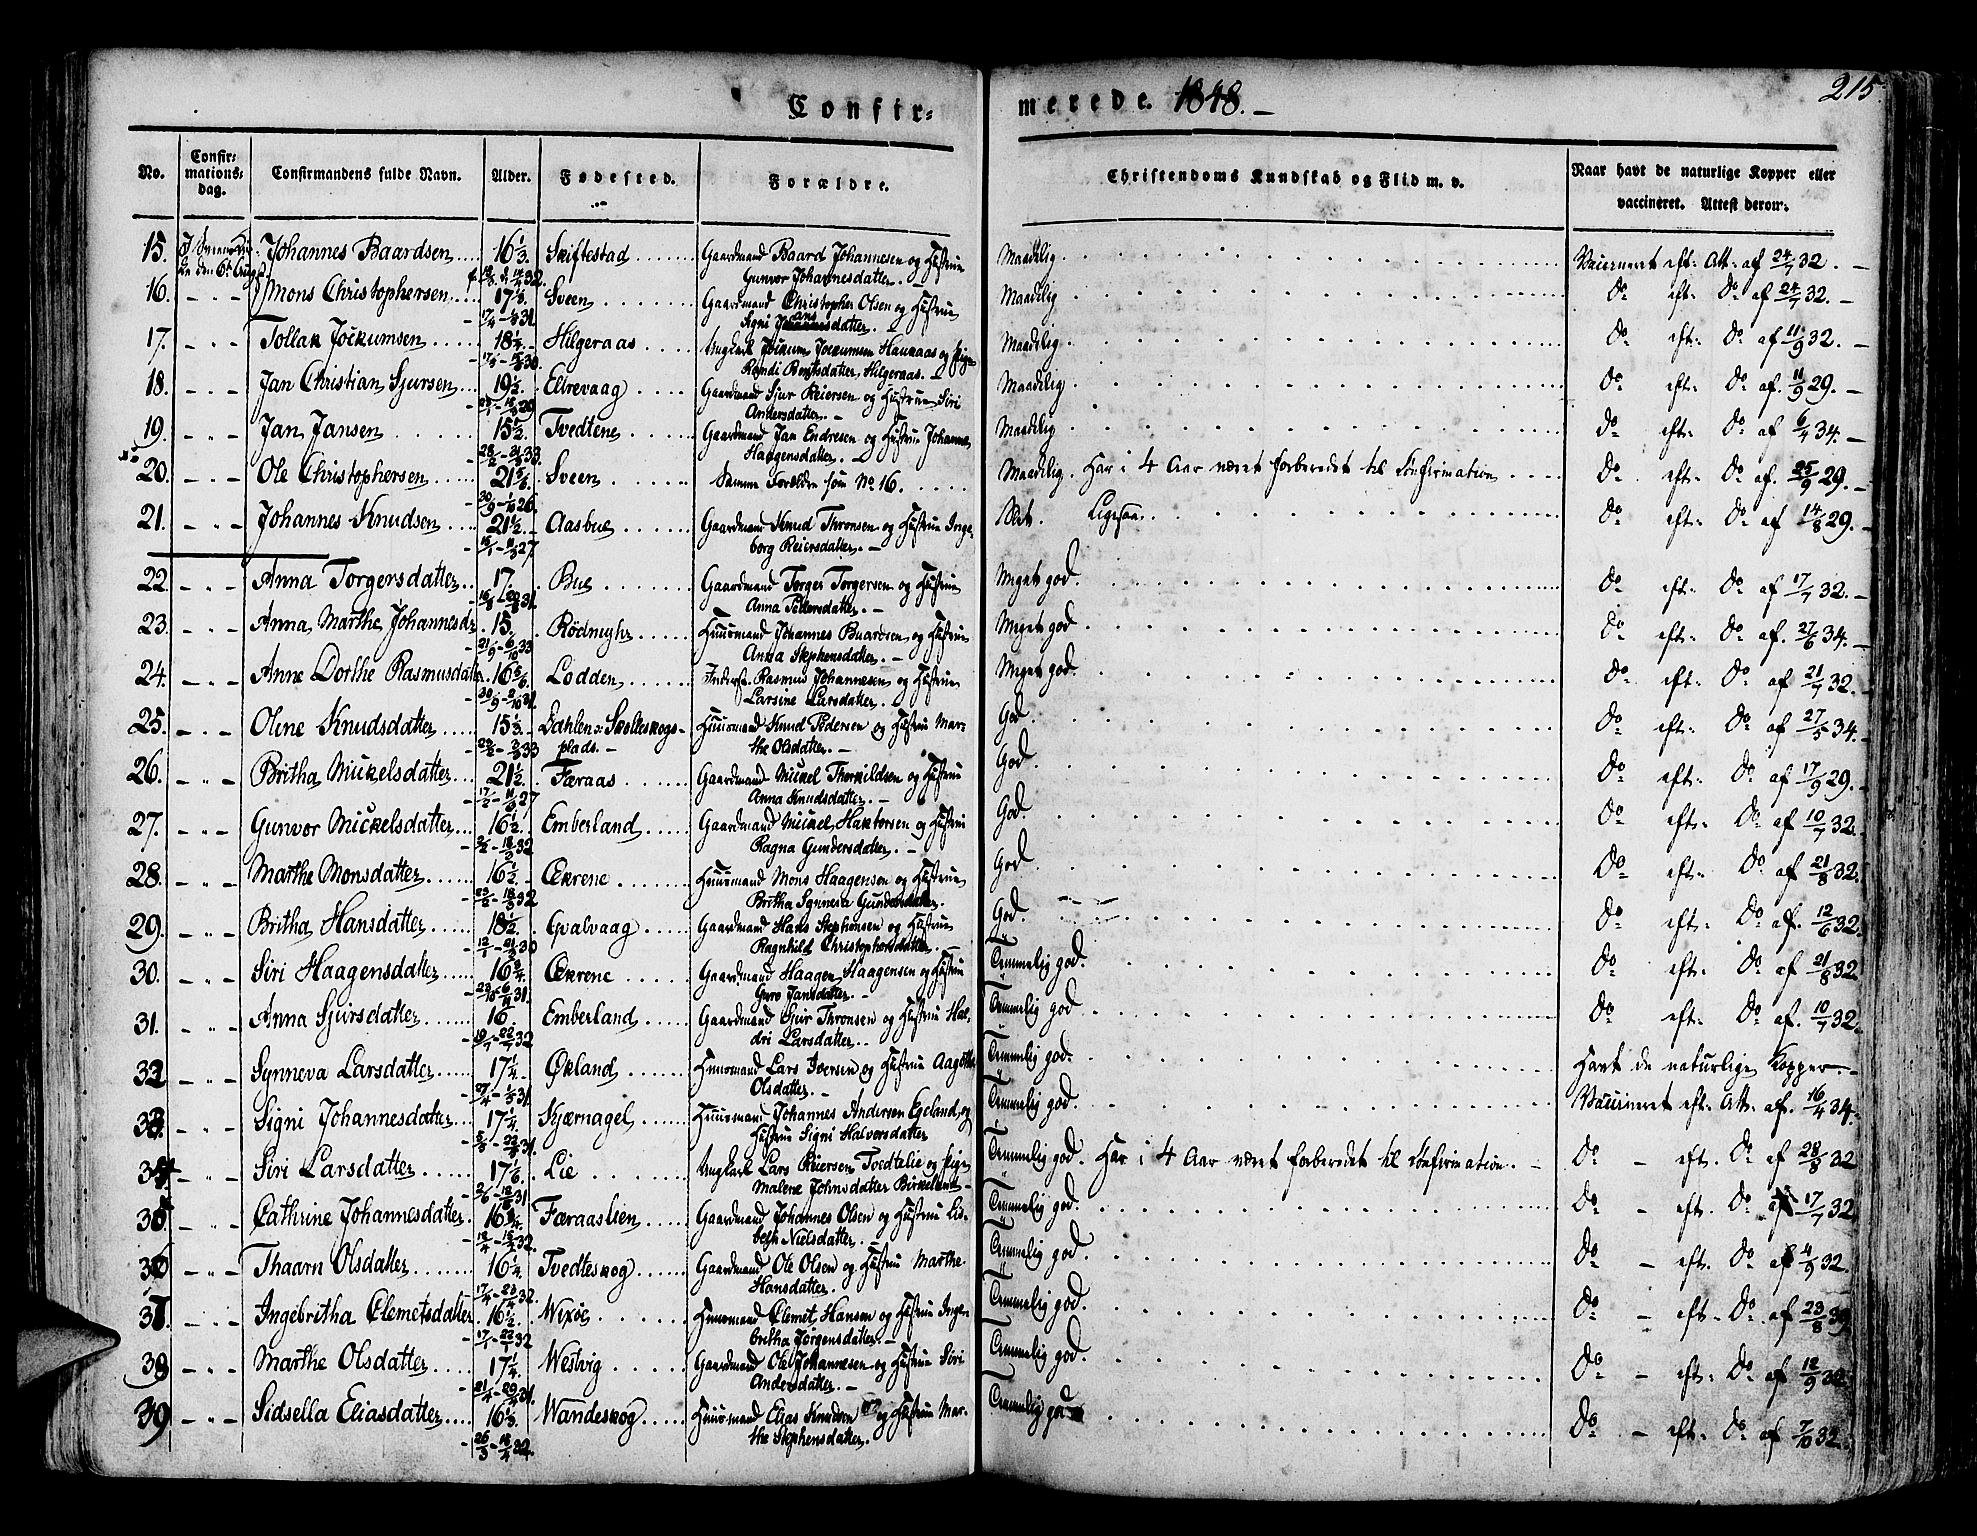 215
Confir=
merede. 1848. –
No.
Confir=
mations=
dag.
Confirmandens fulde Navn.
Alder.
Fødested.
Forældre.
Christendoms Kundskab og Flid m. v.
Naar havt de naturlige Kopper eller
vaccineret. Attest derom.
15. den 6. Aug. Johannes Baardsen 16 1/3 Skiftestad Gaardmand Baard Johannesen og Hustrue Maadelig Vaccineret eft. Att. af 24/7 32. –
Gunvor Johannesdatter. –
16. – „ – Mons Christophersen 17 1/3 Sveen Gaardmand Christopher Olsen og Hustrue Maadelig do eft. do af 24/7 32. –
Signi
17. – „ – Tollak Jockumsen 18 1/4 Hilgeraas Ungkarl Jockum Jockumsen Haukaas og Pige Maadelig do eft. do af 11/9 32. –
Randi Bentsdatter, Hilgeraas. –
18. – „ – Jan Christian Sjursen 19 1/2 Ellrevaag Gaardmand Sjur Reiersen og Hustrue Siri Maadelig do eft. do af. 11/9 29. –
Andersdatter. –
19. – „ – Jan Jansen 15 1/2 Tvedtene Gaardmand Jan Endresen og Hustrue Johanne Maadelig do eft. do af 6/4 34. –
Haagensdatter. –
20. – „ – Ole Christophersen 21 5/6 Sveen Samme Forældre som No 16. Maadelig. Har i 4 Aar været forberedet til Confirmation do eft. do af. 25/9 29. –
21. – „ – Johannes Knudsen 21 1/2 Aasbue Gaardmand Knud Thronsen og Hustrue Inge= Slet. Ligesaa do eft. do af 14/8 29. –
borg Reiersdatter. –
22. – „ – Anna Torgersdatter 17. Bue Gaardmand Torger Torgersen og Hustrue Meget god. do eft. do af 17/7 32. –
Anna Pedersdatter. –
23. – „ – Anna Marthe Johannesdr. 15. Huusmand Johannes Baardsen og Hustrue Meget god do eft. do af. 27/6 34. –
Anna Stephensdatter. –
24. – „ – Anne Dorthe Rasmusdatter 16 5/6 Lodden Inderst. Rasmus Johannesen og Hustrue Meget god. do eft. do af 21/7 32. –
Larsine Larsdatter.
25. – „ – Oline Knudsdatter 15 1/3 Dahlen v. Skolleskogs= Huusmand Knud Pedersen og Hustrue Mar= God. do eft. do af 27/5 34. –
plads. – the Olsdatter. –
26. – „ – Britha Mickelsdatter 21 1/2 Færaas Gaardmand Mickel Thorkildsen og Hustrue God. do eft. do af 17/9 29. –
Anna Knudsdatter. –
27. – „ – Gunvor Mickelsdatter 16 1/2 Emberland Gaardmand Mickel Haktorsen og Hustrue God. do eft. do af 10/7 32.
Ragna Gundersdatter. –
28. – „ – Marthe Monsdatter 16 1/2 Øekrene Huusmand Mons Haagensen og Hustrue God. do eft. do af 21/8 32.
Britha Synneva Gundersdatter.
29. – „ – Britha Hansdatter 18 1/2 Qvalvaag Gaardmand Hans Stephensen og Hustrue God. do eft. do af. 12/6 32.
Ragnhild Christophersdatter. –
30. – „ – Siri Haagensdatter 16 3/4 Øekrene Gaardmand Haagen Haagensen og Hustrue Temmelig god. do eft. do af 21/8 32
Guro Jansdatter. –
31. – „ – Anna Sjursdatter 16. Emberland Gaardmand Sjur Thronsen og Hustrue Hal= Temmelig god do eft. do af. 10/7 32.
dri Larsdatter.
32 – „ – Synneva Larsdatter 17 1/4 Økland Huusmand Lars Iversen og Hustrue Aagothe Temmelig god. Havt de naturlige Kopper. –
Olsdatter. –
33 – „ – Signi Johannesdatter 17 1/4 Skjærnagel Huusmand Johannes Andersen Egeland, og Temmelig god. Vaccineret eft. Att. af. 16/4 34.
Hustrue Signi Halvorsdatter
34 – „ – Siri Larsdatter 17 1/6 Lie Ungkarl Lars Reiersen Tvedtelie og Pige Temmelig god. Har i 4 Aar været forberedet til Confirmation. – do – eft. do af 28/8 32
Malene Johnsdatter Birkeland –
35 – „ – Cathrine Johannesdatter 16 1/4 Færaaslien Gaardmand Johannes Olsen og Hustrue Lis= Temmelig god. do – eft. do af 17/7 32.
beth Nielsdatter. –
36 – „ – Thaarn Olsdatter 16 1/4 Tvedteskog Gaardmand Ole Olsen og Hustrue Marthe Temmelig god. do – eft. do af 4/9 32.
Hansdatter. –
37. – „ – Ingebritha Clemetsdatter 16 1/2 Wixøe Huusmand Clemet Hansen og Hustrue Inge= Temmelig god. do – eft. do af 23/8
britha Jørgensdatter. –
38 – „ – Marthe Olsdatter 17 1/4 Westvig Gaardmand Ole Johannesen og Hustrue Siri Temmelig god. do – eft. do af 12/9 32
Andersdatter. –
39 – „ – Sidsella Eliasdatter 16 1/3 Wandeskog Huusmand Elias Knudsen og Hustrue Mar= Temmelig god do – eft. do af 7/10 32
the Stephensdatter.